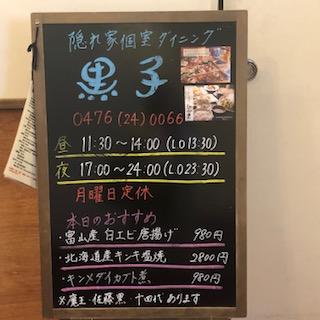 隠れ家個室ダイニング
黒子
0476(24)0066
昼 11:30〜14:00(LO13:30)
夜 17:00〜24:00(LO23:30)
月曜日定休
本日のおすすめ
・富山産 白エビ唐揚げ 980円
・北海道産キンキ塩焼 2800円
・キンメダイカブト煮 980円
※魔王・佐藤黒・十四代あります